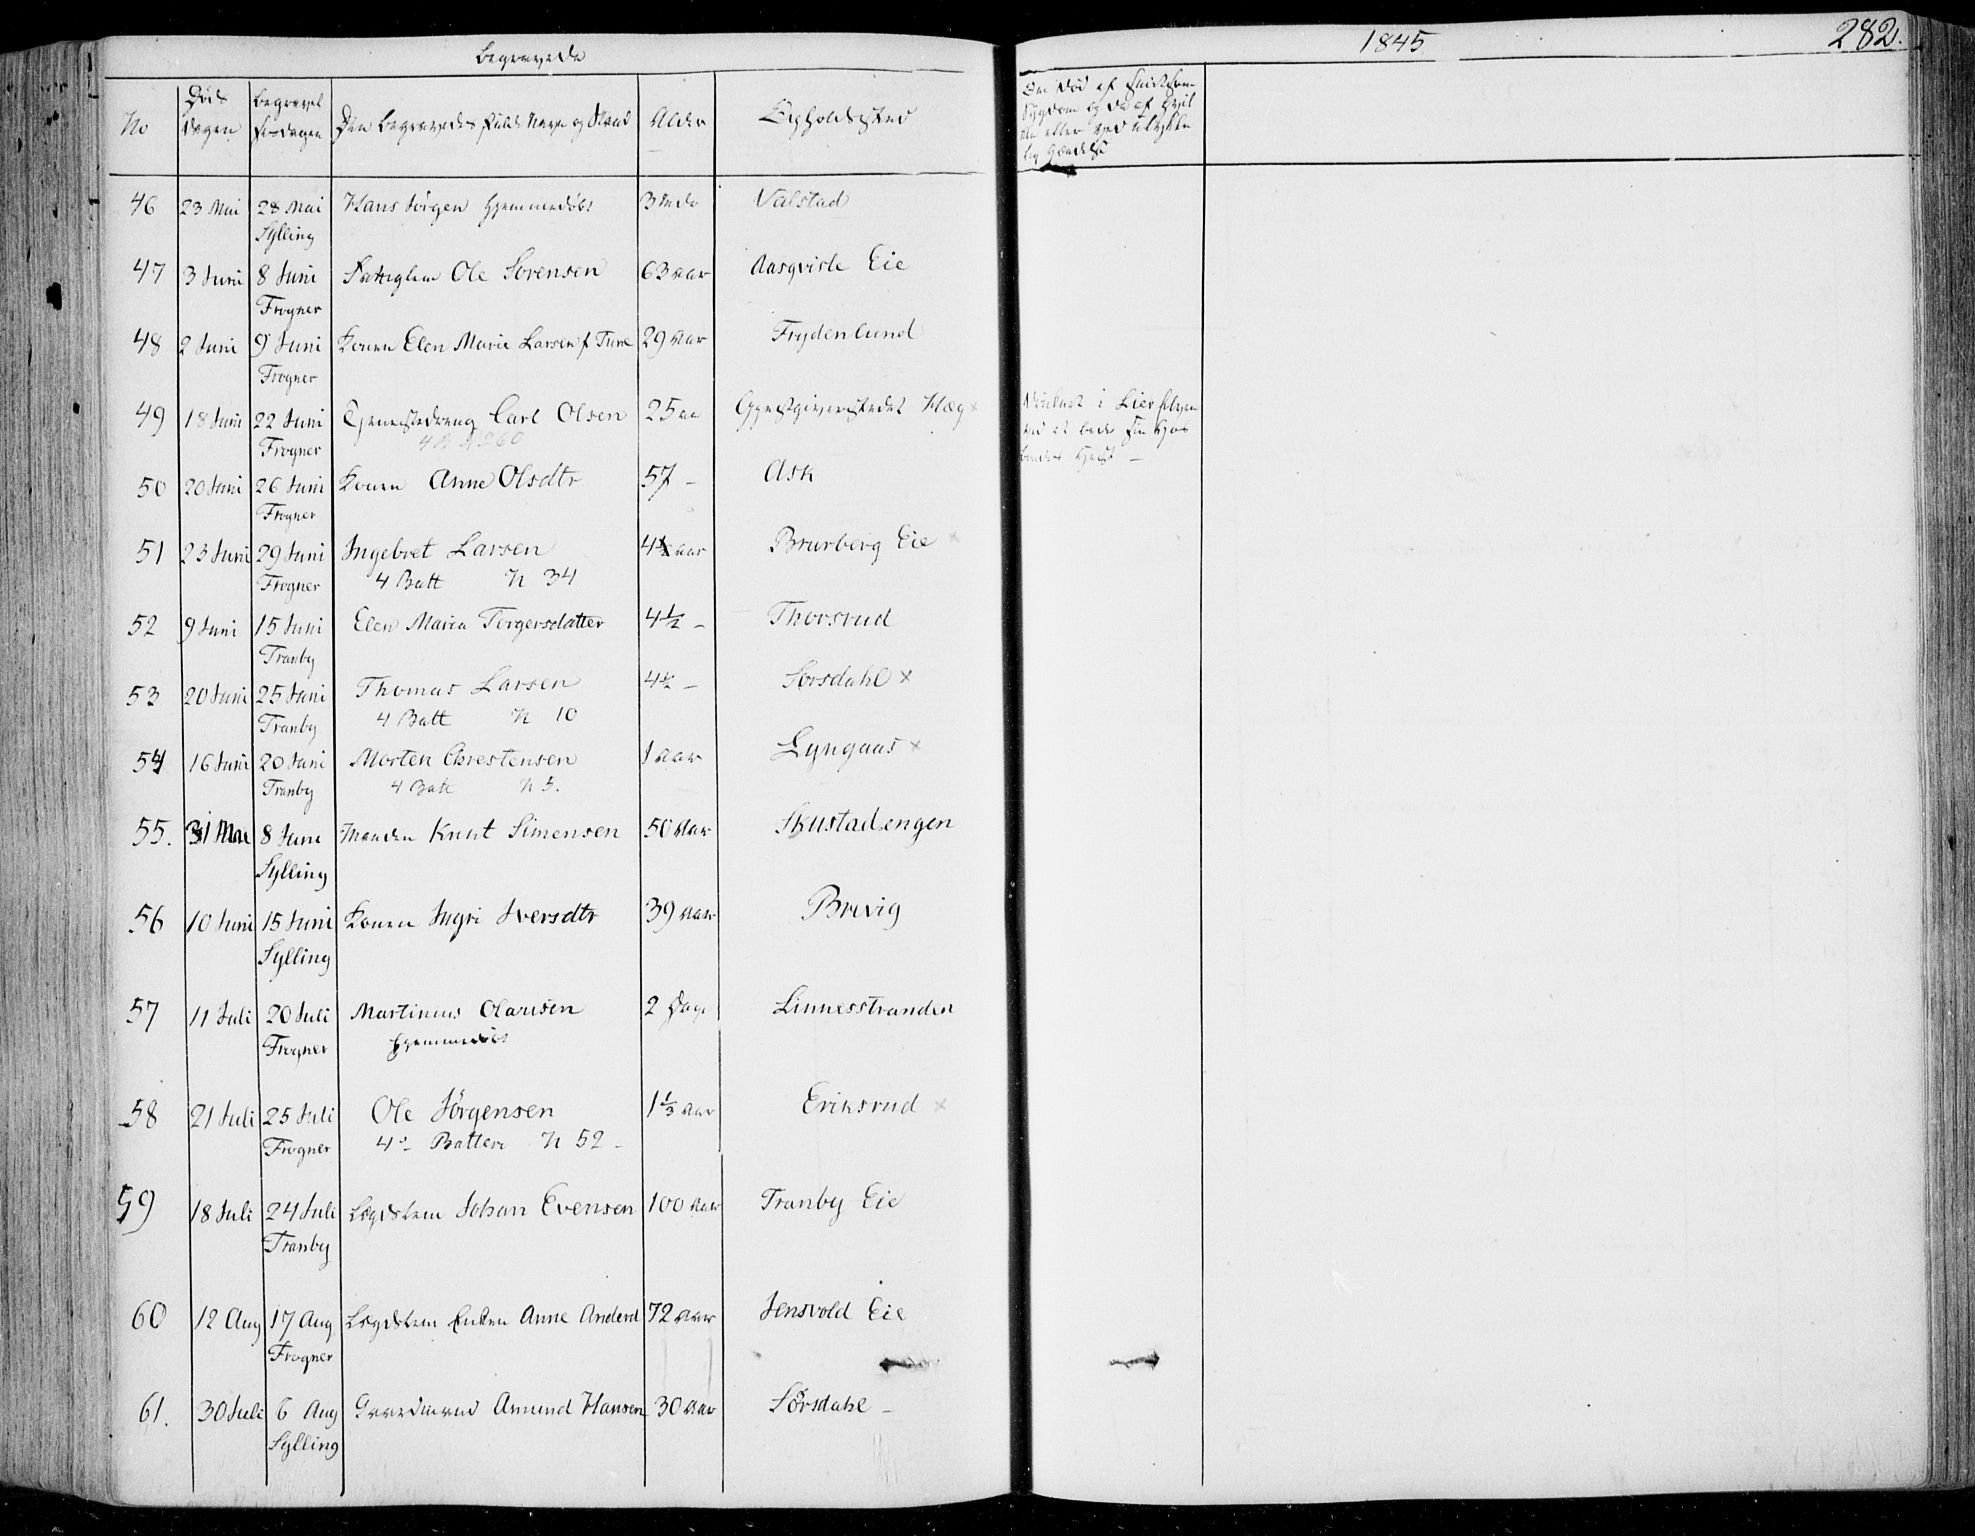 Begravede
1845
282.
No
Døds
dagen
Begravel
sesdagen
Den Begravedes fulde Navn og Stand
Alder
Opholdssted
Om død af smitsom
Sygdom og da af hvil
ken eller ved ulykke
lig Hændelse
46 23 Mai 28 Mai Hans Jørgen Hjemmedøbt 3 Valstad
Sylling
47 3 Juni 8 Juni Fattiglem Ole Sørensen 63 aar Aasqvisle Eie
Frogner
48 2 Juni 9 Juni Konen Elen Marie Larsen f 29 aar Frydenlund
Frogner
49 18 Juni 22 Juni Tjenestedreng Carl Olsen 25 aa Gjestgiverstedet Hæg x
i Lier
ved at bade sin Hos
bonds Hest -
Frogner
50 20 Juni 26 Juni Konen Anne Olsdtr 57 - Ask
Frogner
51 23 Juni 29 Juni Ingebret Larsen 4½ aar Brurberg Eie x
Frogner 4 Batt N 34
52 9 Juni 15 Juni Elen Maria Torgersdatter 4½ - Thorsrud
Tranby
53 20 Juni 25 Juni Thomas Larsen 4½ - Sørsdahl x
Tranby 4 Batt N 10
54 16 Juni 20 Juni Morten Chrestensen 1 aar Lyngaas x
Tranby 4 Batt N 5.
55. 31 Mai 8 Juni Manden Knut Simensen 50 aar Skustadengen
Sylling
56 10 Juni 15 Juni Konen Ingri Iversdtr 39 aar Brevig
Sylling
57 11 Juli 20 Juli Martinus Olausen 2 Dage Linnesstranden
Frogner Hjemmedøbt
58 21 Juli 25 Juli Ole Jørgensen 1⅓ aar Eriksrud x
Frogner 4de Batteri N 52 -
59 18 Juli 24 Juli Lægdslem Johan Evensen 100 aar Tranby Eie
Tranby
60 12 Aug 17 Aug Lægdslem Enken Anne Andersd 72 aar Jensvold Eie
Frogner
61. 30 Juli 6 Aug Gaardmand Amund Hansen 30 aar Sørsdahl -
Sylling